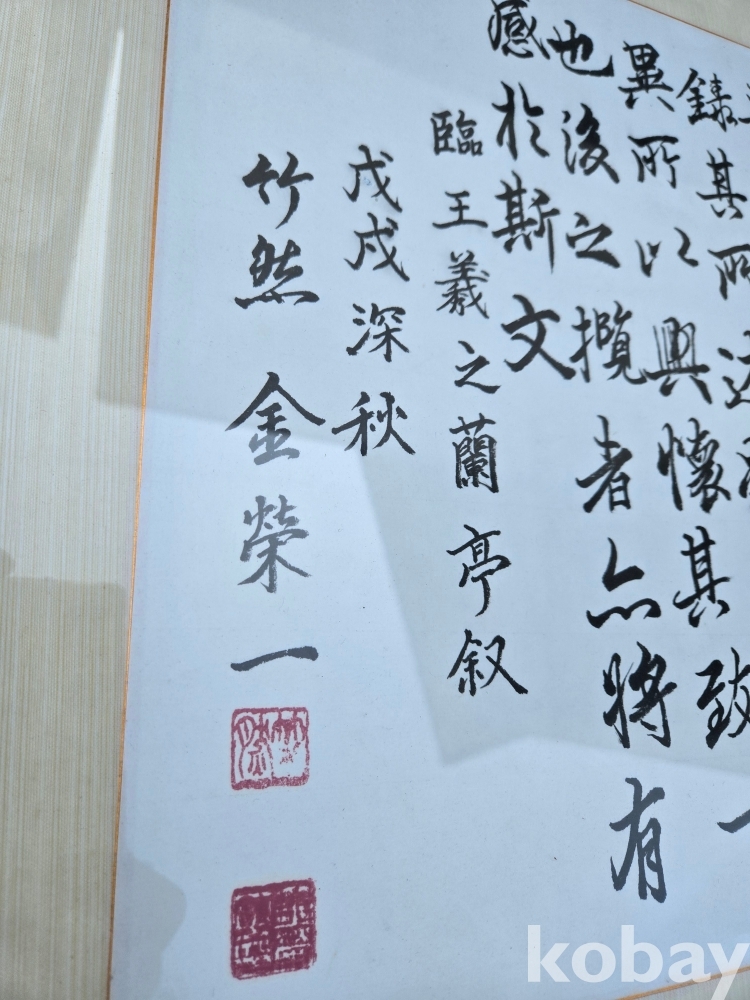 錄其所述
異所以興懷其致一
也後之攬者亦將有
感於斯文
臨王羲之蘭亭叙
戊戌深秋
竹然 金榮一
kobay